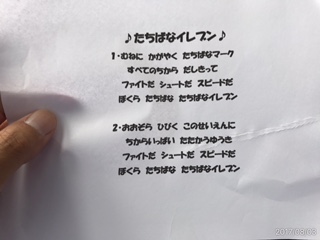 ♪たちばなイレブン♪
1・むねに かがやく たちばなマーク
すべてのちから だしきって
ファイトだ シュートだ スピードだ
ぼくら たちばな たちばなイレブン
2・おおぞら ひびく このせいえんに
ちからいっぱい たたかうゆうき
ファイトだ シュートだ スピードだ
ぼくら たちばな たちばなイレブン